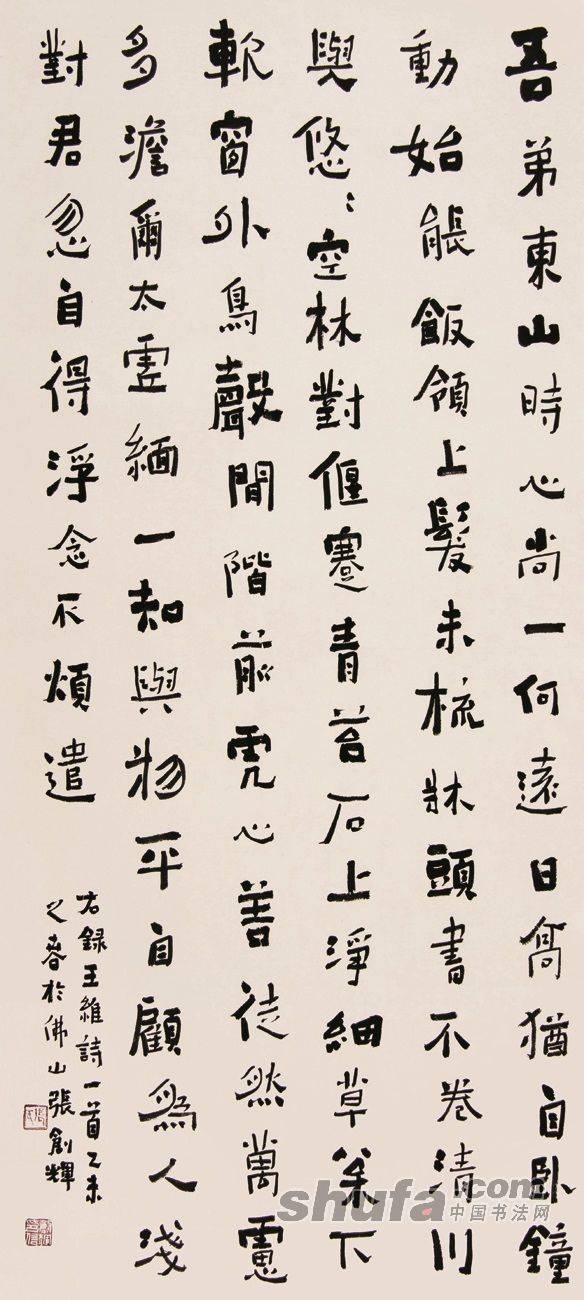 吾弟東山時心尚一何遠日高猶自卧鐘
動始能飯領上髮未梳牀頭書不卷清川
與悠〻空林對偃蹇青苔石上淨細草枀下
軟窗外鳥聲間階前虎心善徒然萬慮
多澹爾太虛緬一知與物平自顧為人淺
對君忽自得浮念不煩遣
右録王維詩一首乙未
之春於佛山張創輝
shufa.com
中国书法网